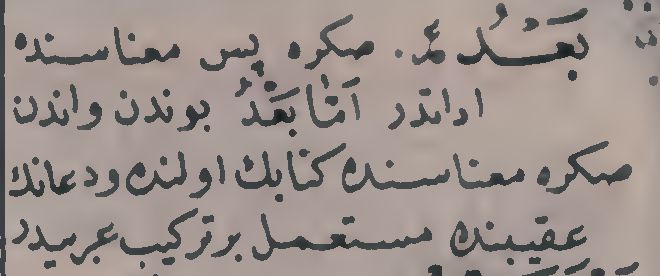 بَعْدُ ع. صكره پس معناسنده
اداتدر اَمَّا بَعْدُ بوندن واندن
صكره معناسنده كتابك اولنده ودعانك
عقيبنده مستعمل بر تركيب عربيدر